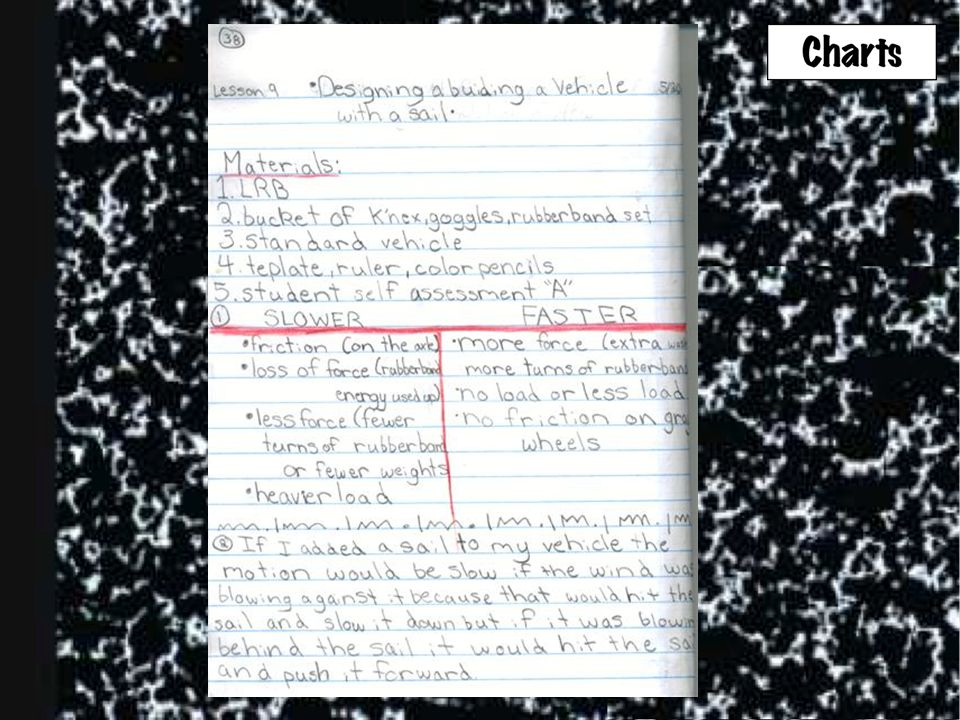 Charts
38
Lesson 9 •Designing a buiding a Vehicle 5/30
with a sail•
Materials:
1. LRB
2. bucket of K'nex, goggles, rubberband set
3. standard vehicle
4. teplate, ruler, color pencils
5. student self assessment "A"
① SLOWER FASTER
•friction (on the axle) •more force (extra
•loss of force (rubberband more turns of rubberband
energy used up) •no load or less load
•less force (fewer •no friction on
turns of rubberband wheels
or fewer weights
•heavier load
② If I added a sail to my vehicle the
motion would be slow if the wind was
blowing against it because that would hit the
sail and slow it down but if it was blowin
behind the sail it would hit the sa
and push it forward.